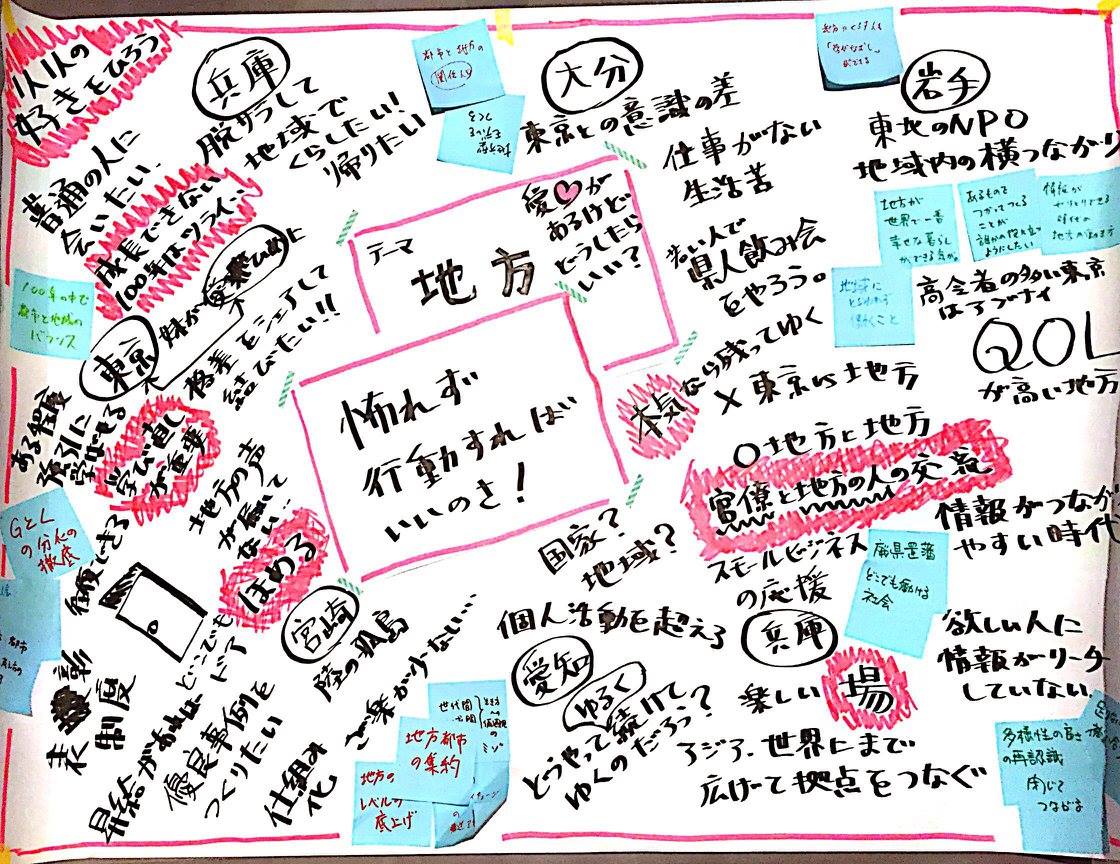 1人1人の
好きをひろう
兵庫
脱サラして
地域で
くらしたい!!
帰りたい
普通の人に
会いたい
成長できない
100年はツライ、
大分
東京との意識の差
仕事がない
生活苦
岩手
東北のNPO
地域内の横つながり
都市と地方の
関係人口
地方が
世界で一番
幸せな暮らし
ができる
あるもので
つかってつくる
ことが
情報が
テーマ
地方
愛♥が
あるけど
どうしたら
いい?
若い人で
県人飲み会
をやろう。
本気なら残ってゆく
× 東京vs地方
○地方と地方
官僚と地方の人の交流
スモールビジネス
の応援
高令者の多い東京
はアブナイ
QOL
が高い地方
情報がつながり
やすい時代
100年の中で
都市と地域の
バランス
東京
妹が
格差をシェアして
結びたい!!
ある程度
強引に
学ばせる
学び直し
が重要
地方の声
が届いて
ない…
怖れず
行動すれば
いいのさ!
GとL
の分の
徹底
往復できる
ほめる
表彰
制度
昇給があれば
どこでも
ドア
優良事例を
つくりたい
仕組み
化
宮崎
陸の孤島
ご楽が少ない…
国家?
地域?
個人活動を超える
愛知
ゆるく
どうやって続けて
ゆくのだろう?
兵庫
楽しい場
アジア、世界にまで
広げて拠点をつなぐ
廃県置藩
どこでも働ける
社会
欲しい人に
情報がリーチ
していない
世代間
地方都市
の集約
地方の
レベルの
底上げ
多様性の
の再認識
閉じて
つながる